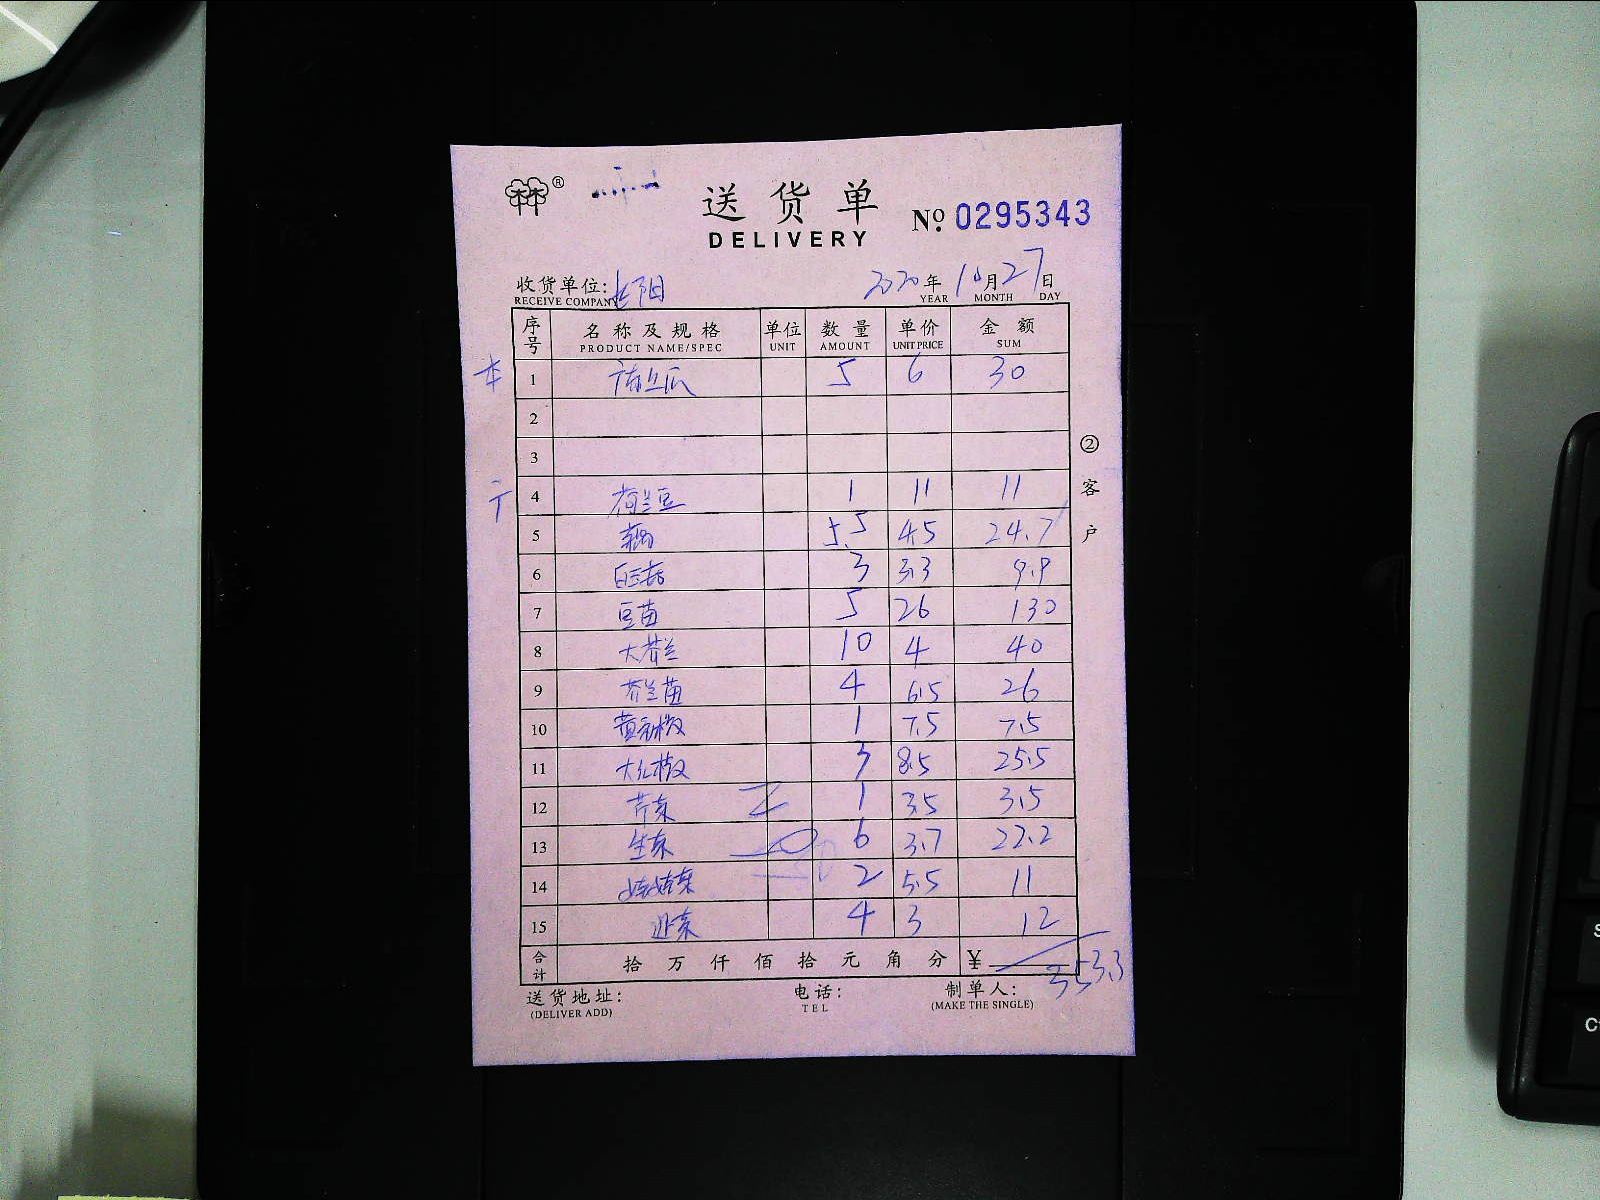 送货单
DELIVERY
No. 0295343
收货单位: 阳 2020年10月27日
RECEIVE COMPANY YEAR MONTH DAY
序号 名称及规格 单位 数量 单价 金额
PRODUCT NAME/SPEC UNIT AMOUNT UNIT PRICE SUM
本 1 丝瓜 5 6 30
2
3
4 荷兰豆 1 11 11
5 藕 5.5 4.5 24.7
6 白玉菇 3 3.3 9.9
7 豆苗 5 26 130
8 大芥兰 10 4 40
9 芥兰苗 4 6.5 26
10 黄 椒 1 7.5 7.5
11 大红椒 3 8.5 25.5
12 芹菜 1 3.5 3.5
13 生菜 6 3.7 22.2
14 娃娃菜 2 5.5 11
15 菜 4 3 12
合计 拾万仟佰拾元角分 ¥ 353.3
送货地址: 电话: 制单人:
(DELIVER ADD) TEL (MAKE THE SINGLE)
②客户